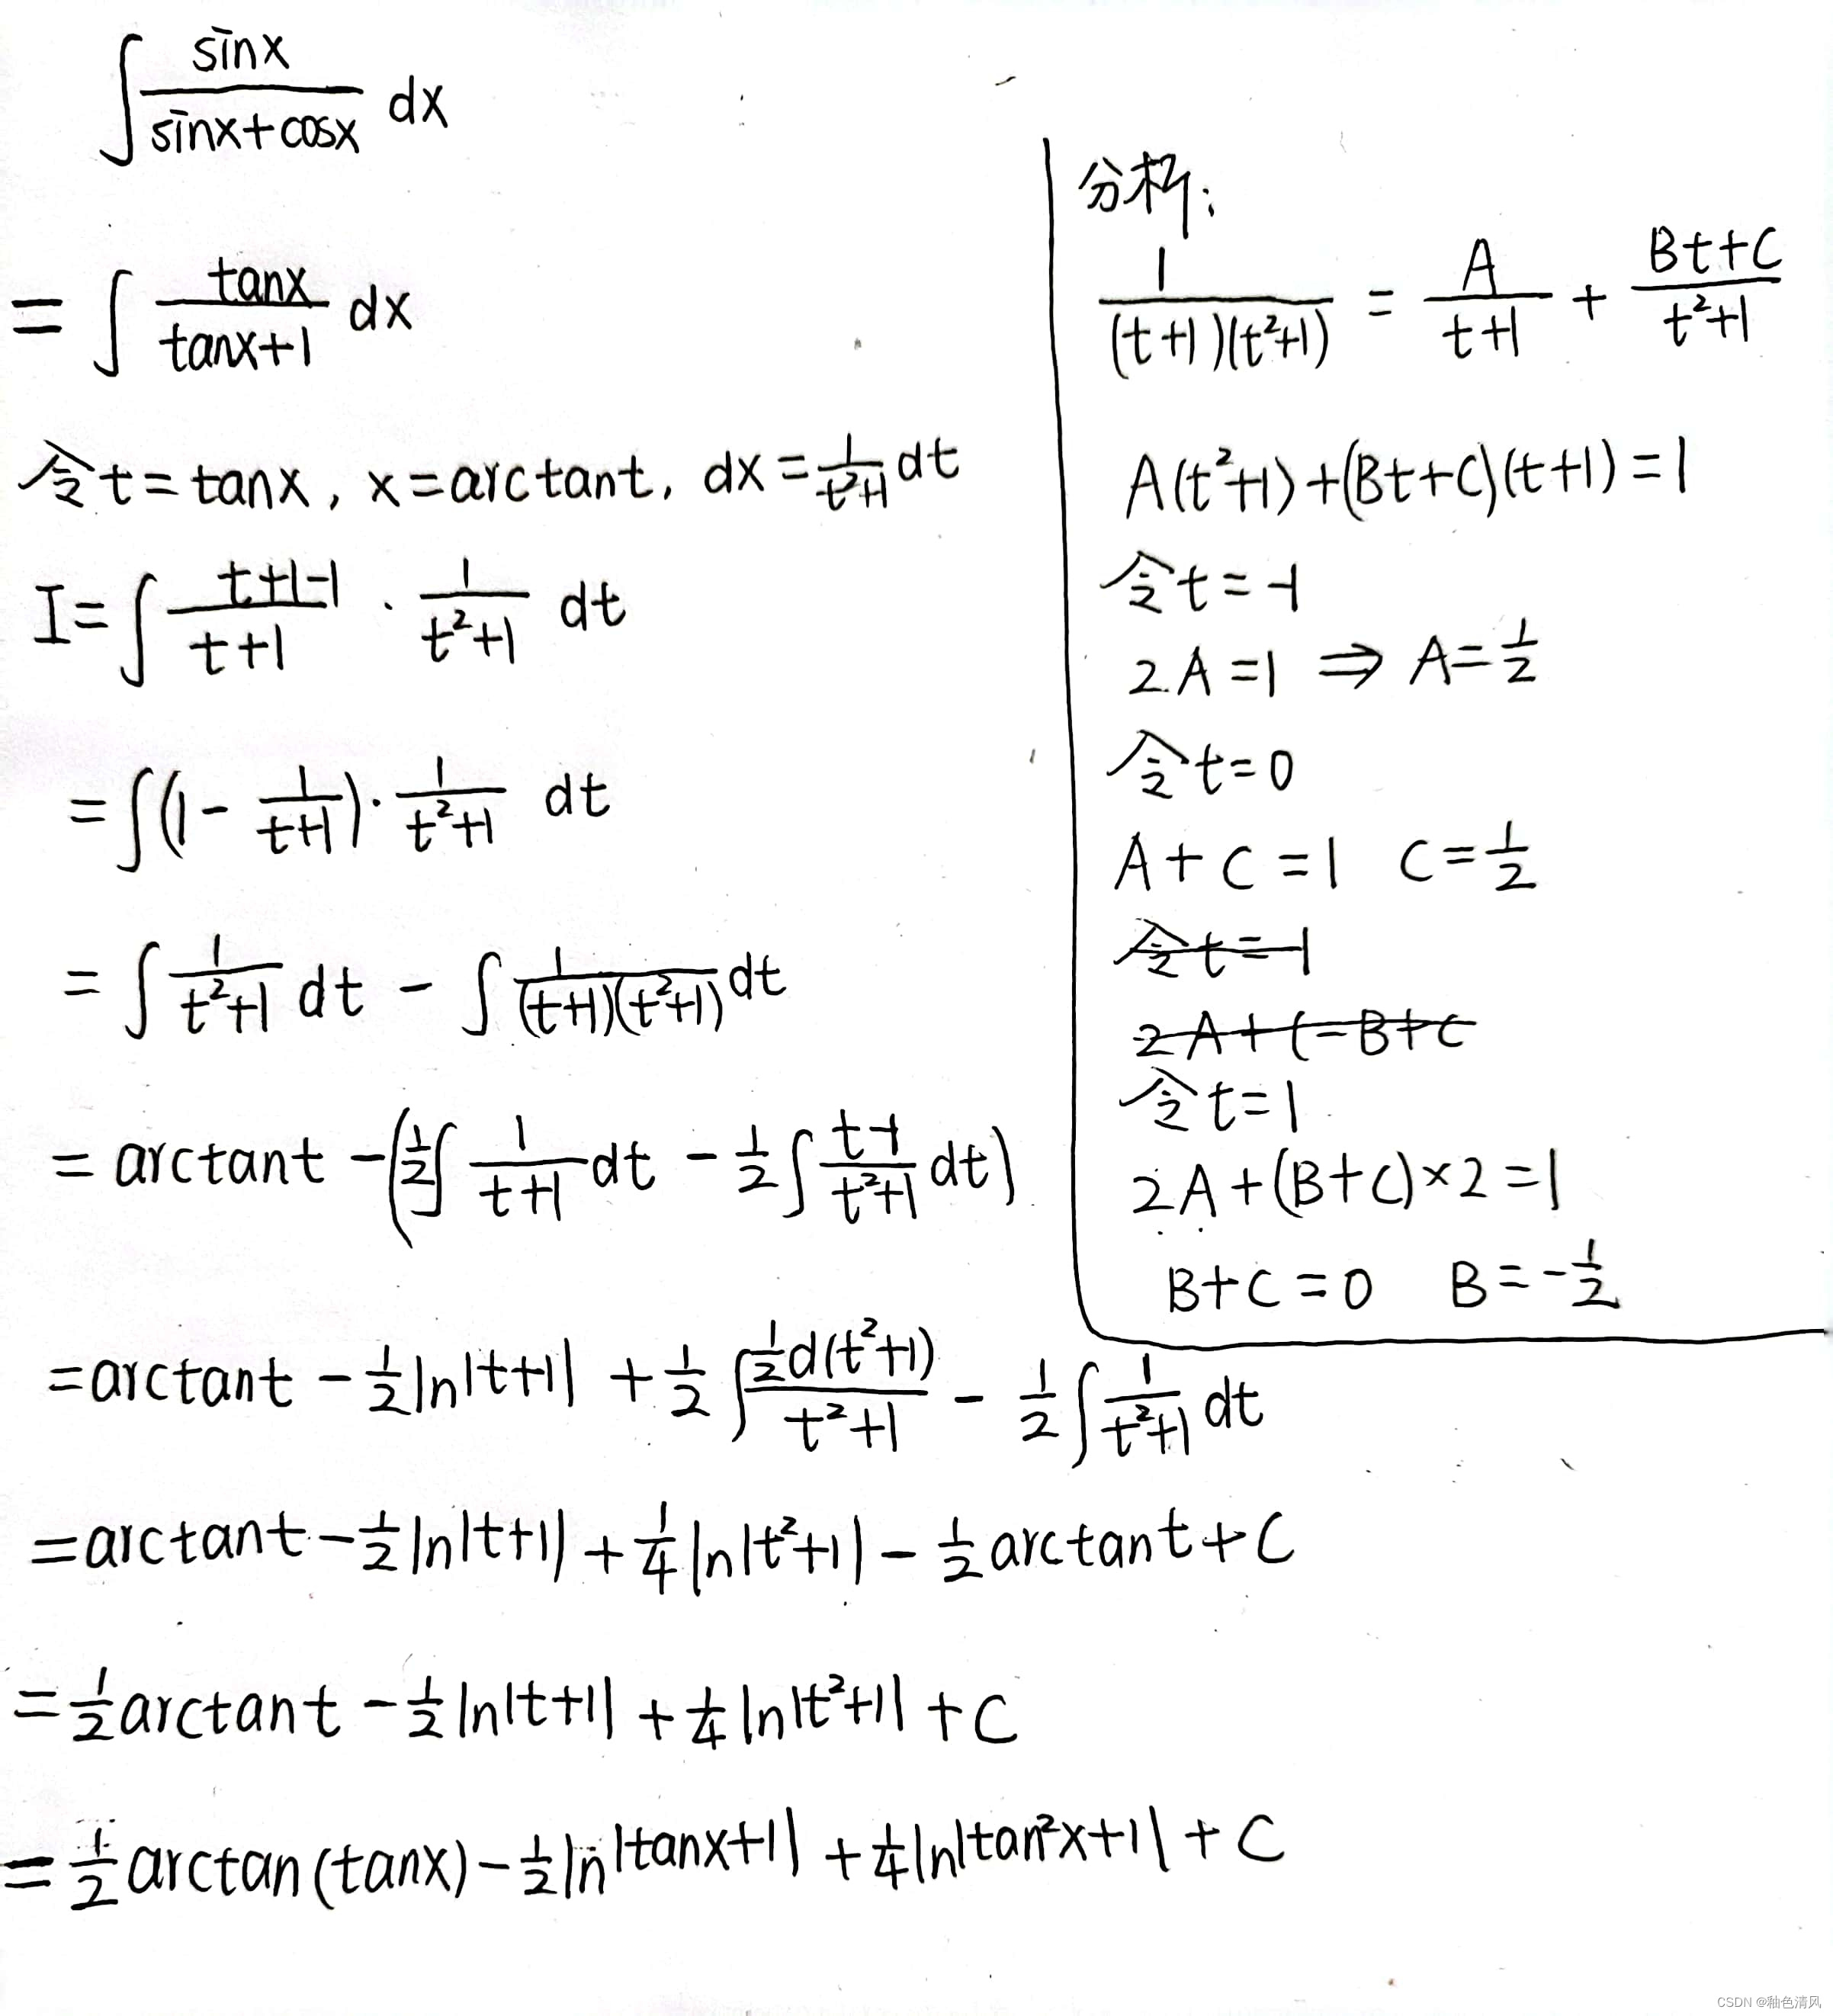 ∫ sinx/(sinx+cosx) dx
= ∫ tanx/(tanx+1) dx
令t=tanx, x=arctant, dx=1/(t²+1) dt
I=∫ (t+1-1)/(t+1) · 1/(t²+1) dt
=∫(1- 1/(t+1))·1/(t²+1) dt
=∫ 1/(t²+1) dt - ∫ 1/((t+1)(t²+1)) dt
= arctant -(½∫ 1/(t+1) dt - ½∫ (t-1)/(t²+1) dt)
=arctant - ½ln|t+1| + ½∫ ½d(t²+1)/(t²+1) - ½∫ 1/(t²+1) dt
=arctant-½ln|t+1| + ¼ln|t²+1| - ½arctant+C
=½arctant -½ln|t+1| +¼ln|t²+1| +C
=½arctan(tanx)-½ln|tanx+1| +¼ln|tan²x+1| +C
分析:
1/((t+1)(t²+1)) = A/(t+1) + (Bt+C)/(t²+1)
A(t²+1)+(Bt+C)(t+1)=1
令t=-1
2A=1 ⇒ A=½
令t=0
A+C=1 C=½
令t=-1
2A+C-B+C
令t=1
2A+(B+C)×2=1
B+C=0 B=-½
CSDN @釉色清风